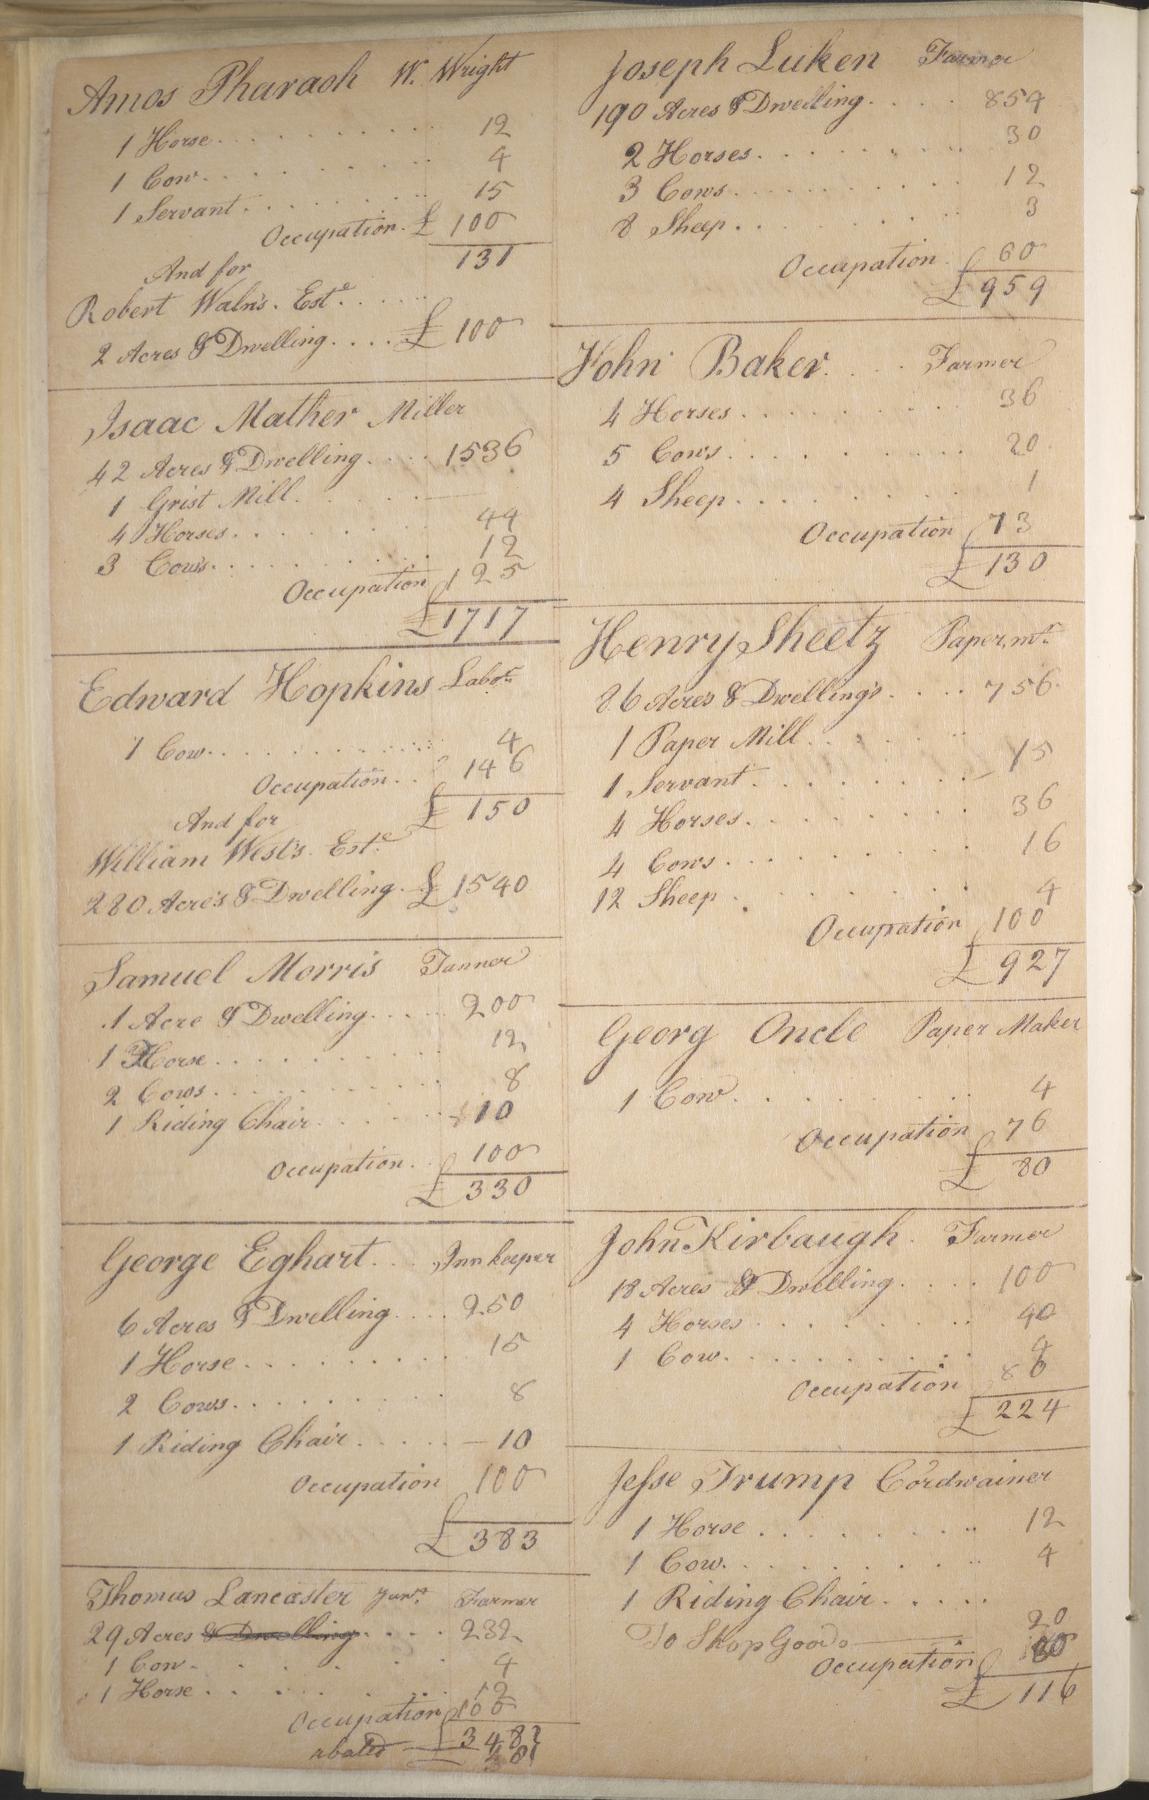 Amos Pharaoh W. Wright
1 Horse . . . 12
1 Cow . . . 4
1 Servant . . . 15
Occupation . £ 100
131
And for
Robert Waln's . Este . . .
2 Acres & Dwelling . . . £ 100
Isaac Mather Miller
42 Acres & Dwelling . . . 1536
1 Grist Mill . . .
4 Horses . . . 44
3 Cows . . . 12
Occupation 125
£1717
Edward Hopkins Labor
1 Cow . . . 4
Occupation . . 146
£ 150
And for
William West's Este
280 Acre's & Dwelling . £ 1540
Samuel Morris Tanner
1 Acre & Dwelling . . . 200
1 Horse . . . 12
2 Cows . . . 8
1 Riding Chair . . . 110
Occupation . . 100
£ 330
George Eghart . . . Innkeeper
6 Acres & Dwelling . . . 250
1 Horse . . . 15
2 Cows . . . 8
1 Riding Chair . . . 10
Occupation 100
£ 383
Thomas Lancaster Junr. Farmer
29 Acres & Dwelling . . . 232
1 Cow . . . 4
1 Horse . . . 12
Occupation 100
£ 348
abated
Joseph Luken Farmer
190 Acres & Dwelling . . . 854
2 Horses . . . 30
3 Cows . . . 12
8 Sheep . . . 3
Occupation . 60
£ 959
John Baker . . . Farmer
4 Horses . . . 36
5 Cows . . . 20
4 Sheep . . . 1
Occupation 73
£ 130
Henry Sheetz Paper, mr.
86 Acres & Dwelling's . . . 756
1 Paper Mill . . .
1 Servant . . . 15
4 Horses . . . 36
4 Cows . . . 16
12 Sheep . . . 4
Occupation 100
£ 927
Georg Oncle Paper Maker
1 Cow . . . 4
Occupation 76
£ 80
John Kirbaugh . Farmer
18 Acres & Dwelling . . . 100
4 Horses . . . 40
1 Cow . . . 4
Occupation 80
£ 224
Jesse Trump Cordwainer
1 Horse . . . 12
1 Cow . . . 4
1 Riding Chair . . .
To Shop Goods 20
Occupation 80
£ 116